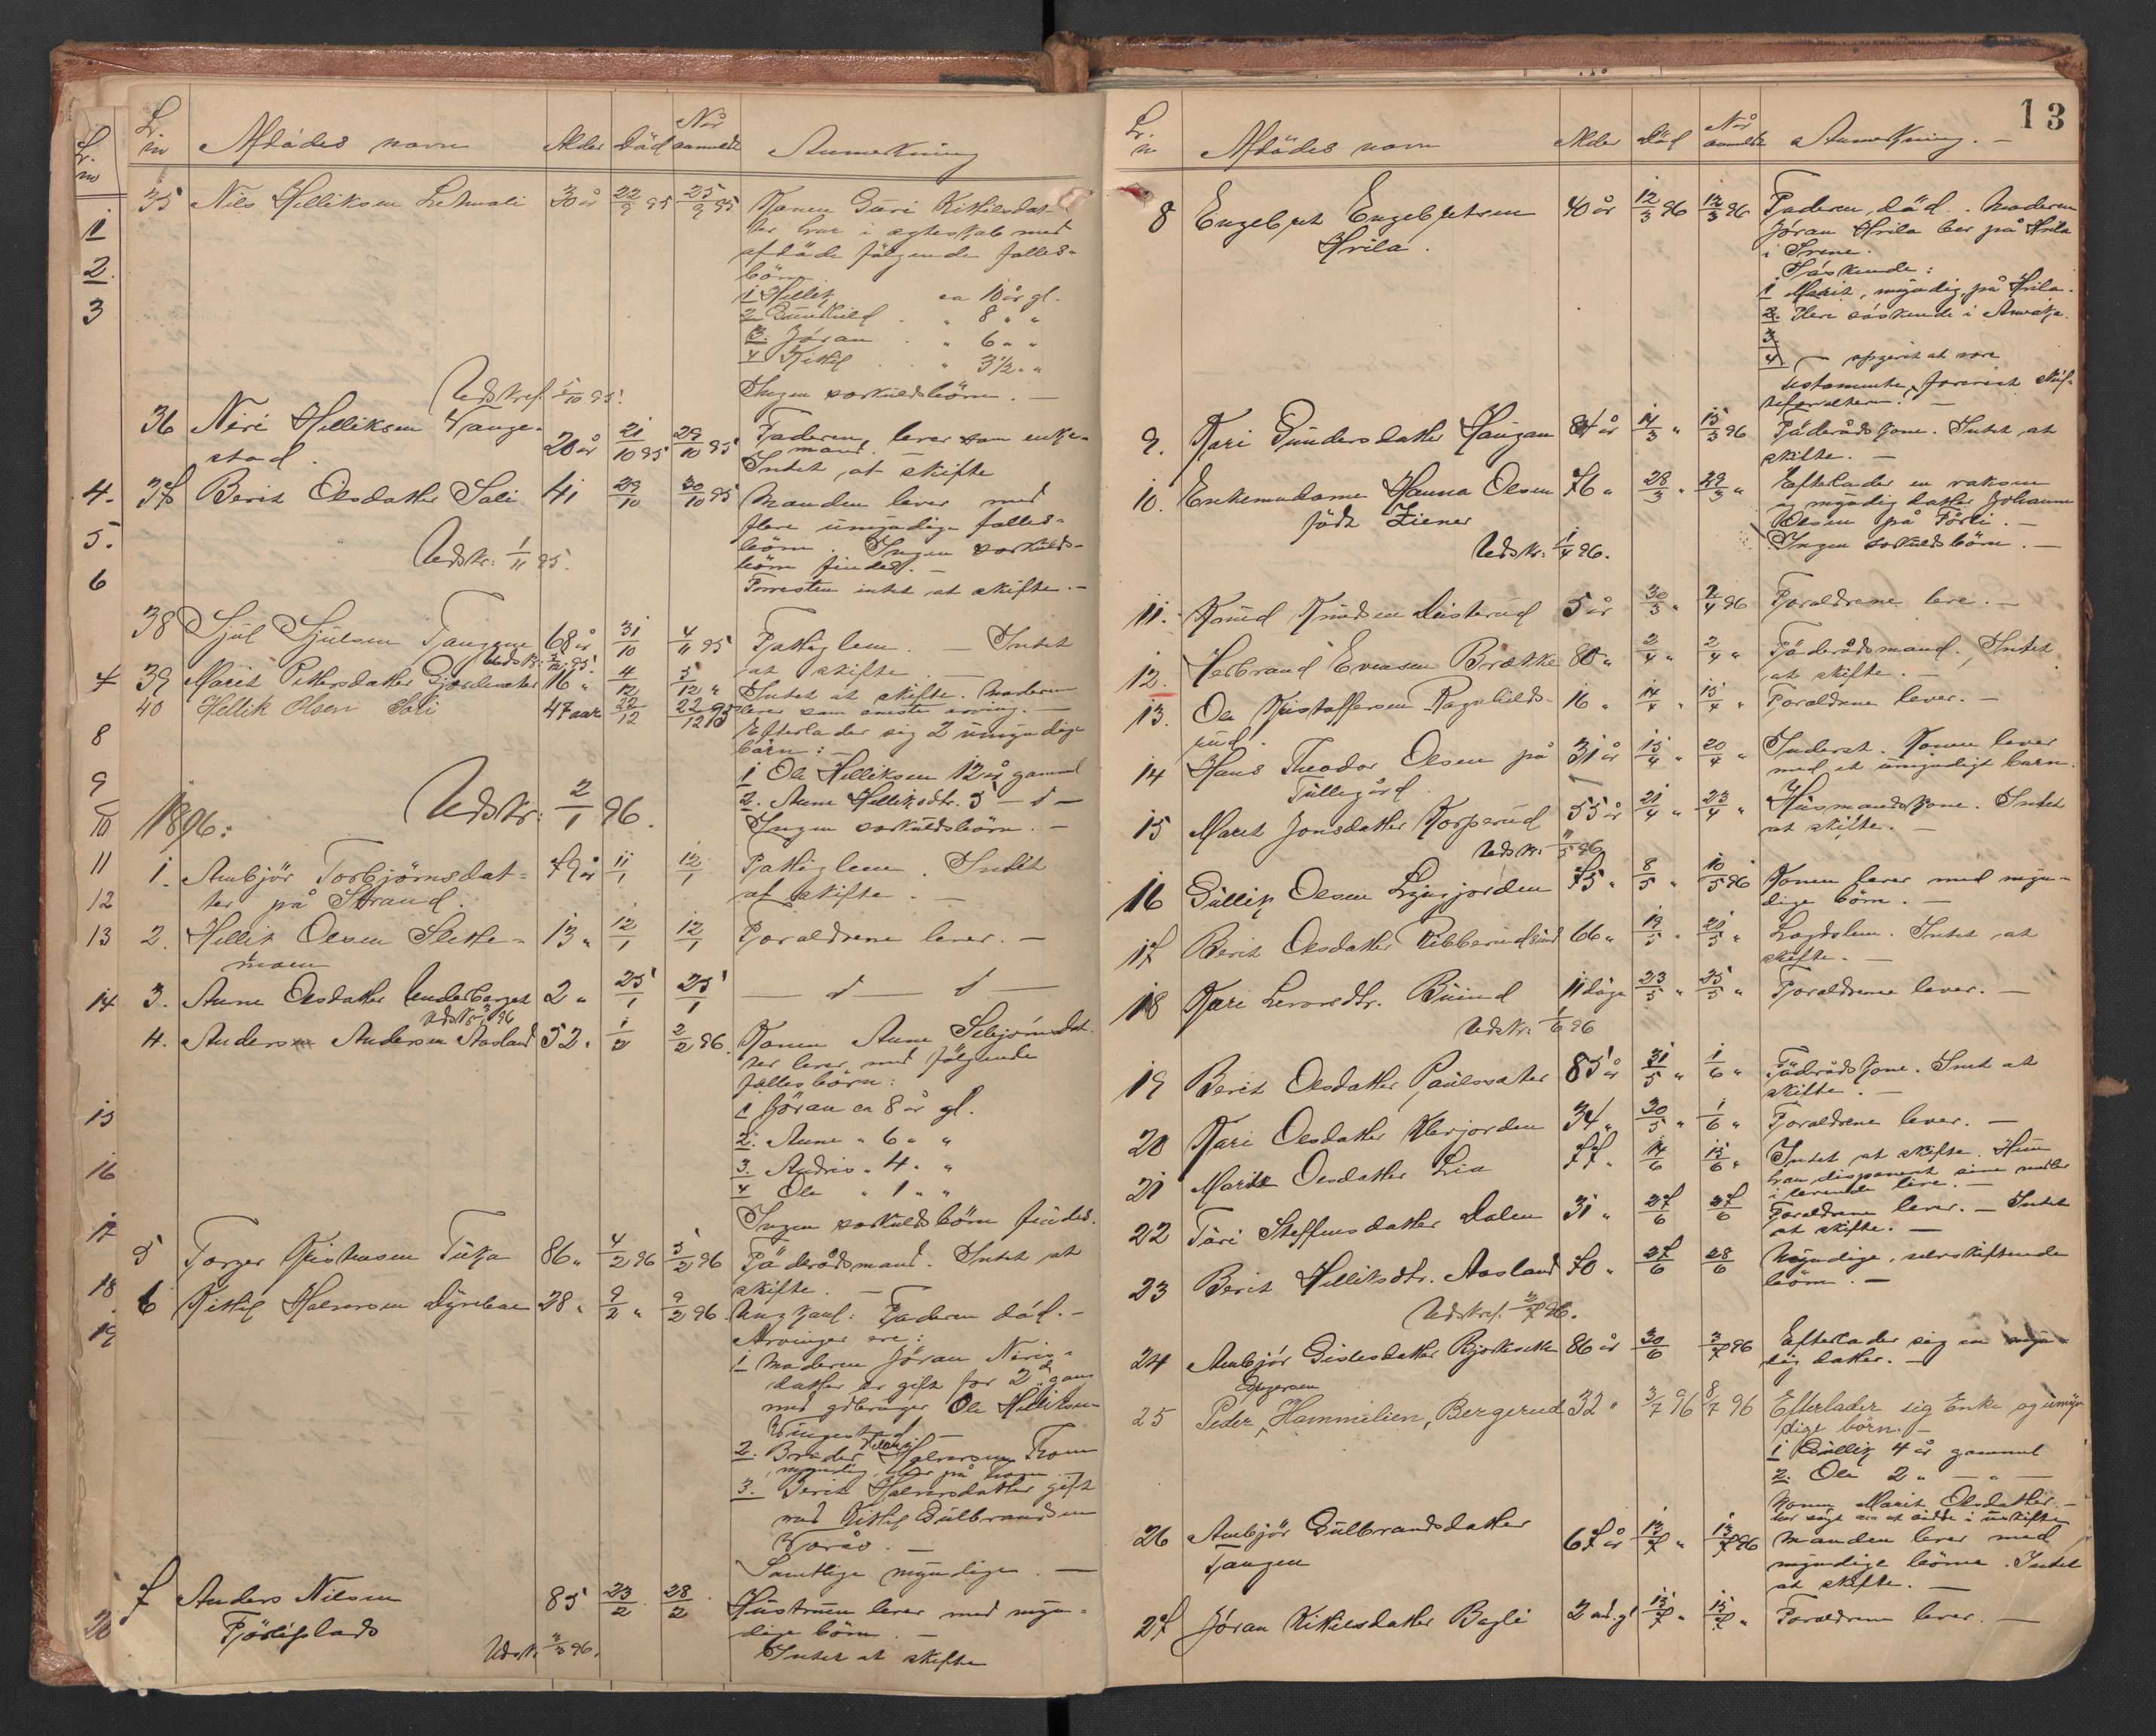 Lr.
no
1
2.
3
4.
5.
6
7
8
9
10
11
12
13
14
15
16
17
18
19
20
Lr.
no Afdødes navn Alder Död Når anmeldt Anmerkning
35 Nils Helliksen 30 år 22/9 95 25/9 95 Konen Guri Kittilsdat-
ter har i ægteskab med
afdøde følgende fælles-
börn
1 Hellik ca 10 år gl.
2 Gunhild " 8 " "
3. Jöran " 6 " "
4 Kittil " 3 1/2 " "
Udskref. 1/10 95. Ingen særkuldsbörn. —
36 Niri Helliksen Vange-
stad. 20 år 21/10 95 29/10 95 Faderen lever som enke-
mand.
Intet at skifte
37 Berit Olsdatter Søli 41 29/10 30/10 95 Manden lever med
flere umyndige fælles-
börn. Ingen særkulds-
börn findes. —
Udskr: 1/11 95. Forresten intet at skifte. —
38 Sjul Sjulsen Tangen 68 år 31/10 4/11 95 Fattiglem. — Intet
at skifte. —
39 Marit Pettersdatter 16 " 4/12 5/12 " Intet at skifte. Moderen
lever som eneste arving. —
40 Hellik Olsen Søri 47 aar 22/12 22/12 95 Efterlader sig 2 umyndige
börn: —
1 Ole Helliksen 12 år gammel
2. Anne Helliksdtr. 5 — d —
Udskr: 2/1 96. Ingen særkuldsbörn. —
1896:
1. Ambjör Torbjörnsdat-
ter på Strand. 79 år 11/1 12/1 Fattiglem. Intet
at skifte. —
2. Hellik Olsen Slette-
moen 13 " 12/1 12/1 Forældrene lever. —
3. Anne Olsdatter Underberget 2 " 25/1 25/1 — d — d —
4. Anders Andersen Aasland 52 " 1/2 2/2 96. Konen Anne Sebjörnsdat-
ter lever med følgende
fælles börn:
1 Jöran ca 8 år gl.
2. Anne " 6 " "
3. Andris " 4 " "
4 Ole " 1 " "
Ingen særkuldsbörn findes.
5 Torger Kristensen Tukja 86 " 4/2 96 5/2 96 Föderådsmand. Intet at
skifte. —
6 Kittil Halvorsen Dyrebæ 28 " 9/2 " 9/2 96. Ungkarl. Faderen död. —
Arvinger ere:
1 Moderen Jöran Niris-
datter er gift for 2d gang
med gdbruger Ole Helliksen
Vangestad. —
2. Broder Halvorsen
myndig,
3. Berit Halvorsdatter gift
med Kittil Gulbrandsen
Samtlige myndige. —
7 Anders Nilsen
Fjösliplads 85 23/2 28/2 Hustruen lever med myn-
dige börn. —
Udskr. 2/3 96. Intet at skifte
13
Lr.
n Afdødes navn Alder Död Når anmeldt Anmerkning. —
8 Engebret Engebretsen
Hvila. 40 år 12/3 96 12/3 96 Faderen död. Moderen
Jöran Hvila bor på Hvila
i Svene.
Söskende:
1 Marit, myndig, på Hvila.
2. Flere söskende i Amerika.
3
4 — opgivet at være
testamente, forevist skif-
teforvalteren. —
9. Kari Gundersdatter Haugan 84 år 14/3 " 15/3 96 Föderådskone. Intet at
skifte. —
10. Enkemadame Hanna Olsen
født Ziener 76 " 28/3 " 29/3 " Efterlader en voksen
og myndig datter Johanne
Olsen på —
Udskr: 1/4 96. Ingen særkuldsbörn. —
11. Knud Knudsen Listerud 5 år 30/3 " 2/4 96 Forældrene leve. —
12. Herbrand Evensen Brække 80 " 2/4 " 2/4 " Föderådsmand. Intet
at skifte. —
13. Ole Kristoffersen Ragnhilds-
rud. 16 " 14/4 " 15/4 " Forældrene lever. —
14 Hans Theodor Olsen på
Tullegård 31 år 15/4 " 20/4 " Inderst. Konen lever
med et umyndigt barn.
15 Marit Jonsdatter Korperud 55 år 21/4 " 23/4 " Husmandskone. Intet
at skifte. —
16 Gullik Olsen Lyngjorden 75 " 8/5 " 10/5 96 Konen lever med myn-
dige börn. —
17 Berit Olsdatter 66 " 19/5 " 21/5 " Lægdslem. Intet at
skifte. —
18 Kari Levorsdtr. Buind 11 dage 23/5 " 25/5 " Forældrene lever. —
Udskr: 1/6 96
19 Berit Olsdatter Paulsæter 85 år 31/5 " 1/6 " Föderådskone. Intet at
skifte. —
20 Kari Olsdatter 34 " 30/5 " 1/6 " Forældrene lever. —
21 Marit Olsdatter Lia 77 " 14/6 15/6 " Intet at skifte. Hun
har disponert sine midler
i levende live. —
22 Turi Steffensdatter Dalen 31 " 27/6 27/6 Forældrene lever. — Intet
at skifte. —
23 Berit Helliksdtr. Aasland 70 " 27/6 28/6 Myndige, selvskiftende
börn. —
Udskref. 2/7 96.
24 Ambjör Gislesdatter 86 år 30/6 3/7 96 Efterlader sig en myn-
dig datter. —
25 Peder Hammelien, Bergerud 32 " 3/7 96 8/7 96 Efterlader sig Enke og umyn
dige börn. —
1 Gullik 4 år gammel
2. Ole 2 " — " —
Konen Marit Olsdatter —
har sögt om at sidde i uskifte
26 Ambjör Gulbrandsdatter
Tangen 67 år 13/7 " 13/7 96 Manden lever med
myndige börn. Intet
at skifte. —
27 Jöran Kittilsdatter Bagli 2 15/7 " 15/7 " Forældrene lever. —